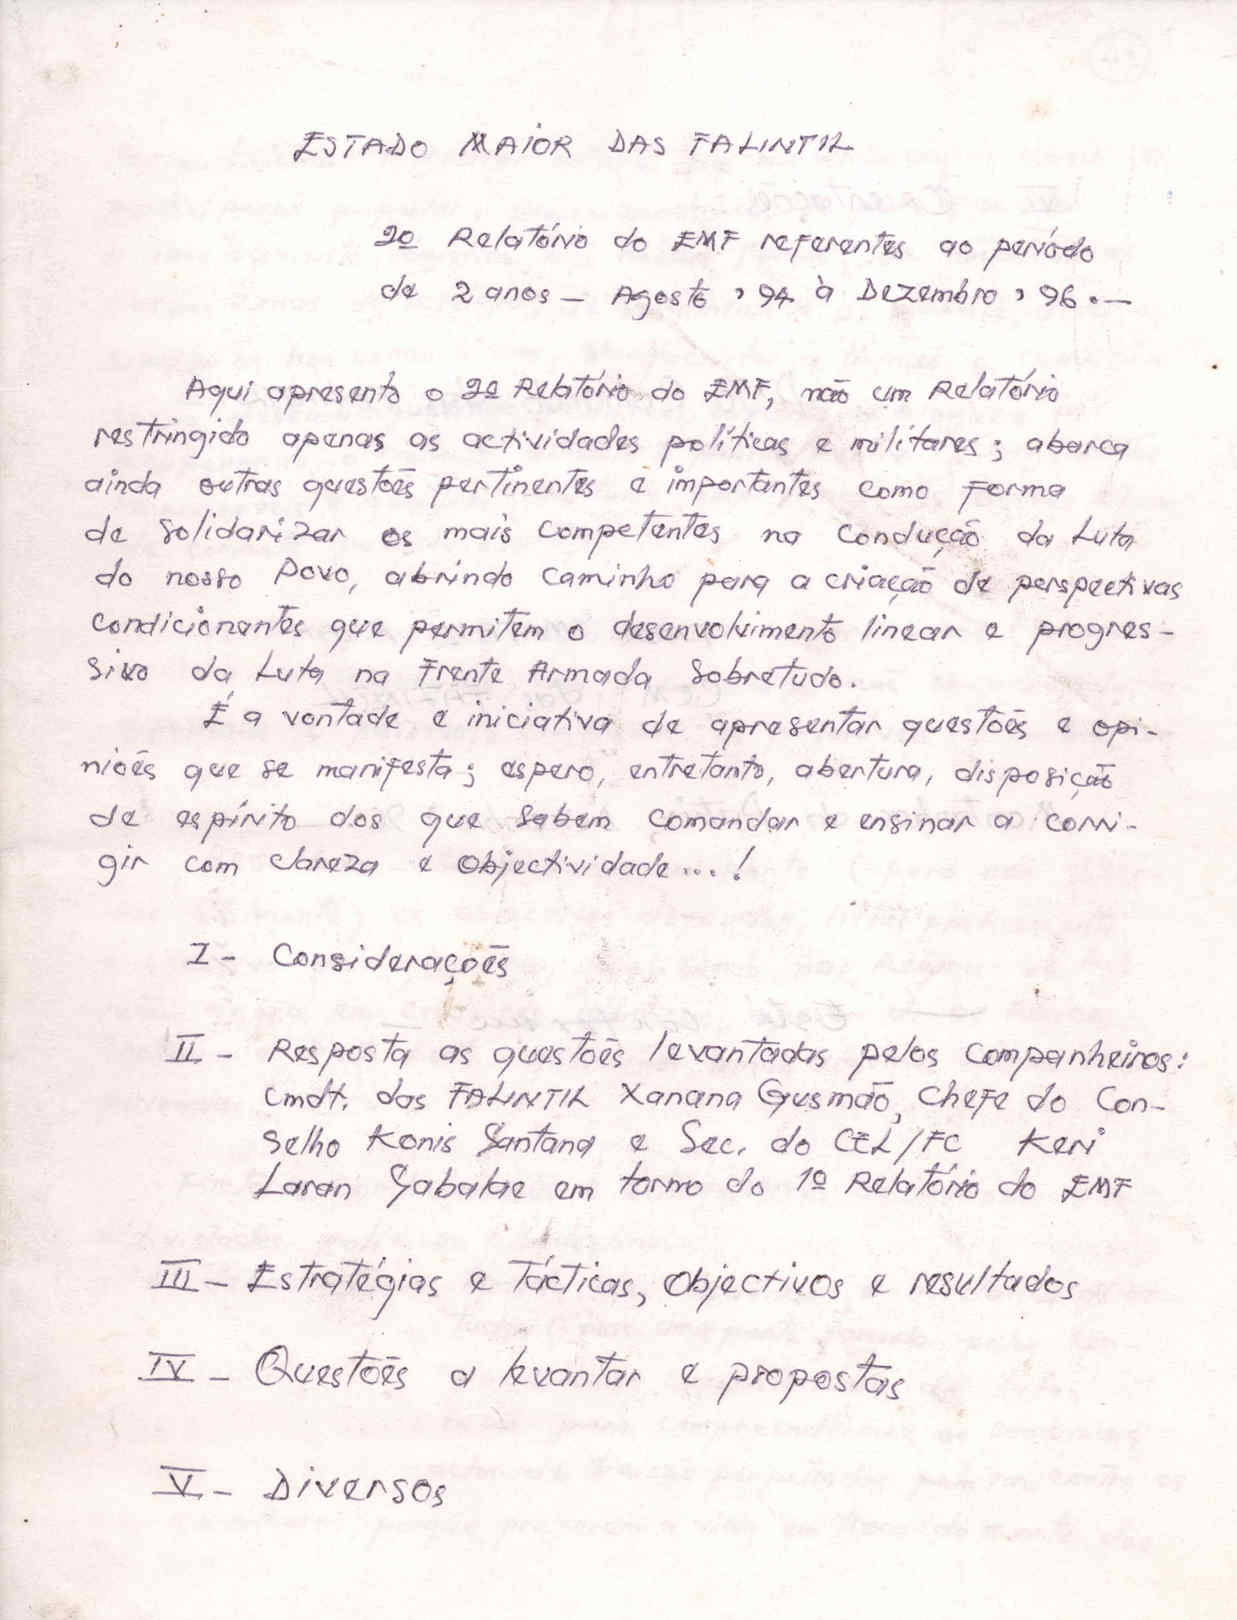 ESTADO MAIOR DAS FALINTIL
2º Relatório do EMF referentes ao período
de 2 anos – Agosto '94 à Dezembro '96.–
Aqui apresento o 2º Relatório do EMF, não um Relatório
restringido apenas as actividades políticas e militares; abarca
ainda outras questões pertinentes e importantes como forma
de solidarizar os mais competentes na condução da Luta
do nosso Povo, abrindo caminho para a criação de perspectivas
condicionantes que permitem o desenvolvimento linear e progres-
sivo da Luta na Frente Armada sobretudo.
É a vontade e iniciativa de apresentar questões e opi-
niões que se manifesta; espero, entretanto, abertura, disposição
de espírito dos que sabem comandar e ensinar a corri-
gir com clareza e objectividade...!
I - Considerações
II - Resposta as questões levantadas pelos Companheiros:
Cmdt. das FALINTIL Xanana Gusmão, Chefe do Con-
selho Konis Santana e Sec. do CEL/FC Keri
Laran Sabalae em torno do 1º Relatório do EMF
III - Estratégias e Tácticas, objectivos e resultados
IV - Questões a levantar e propostas
V - Diversos